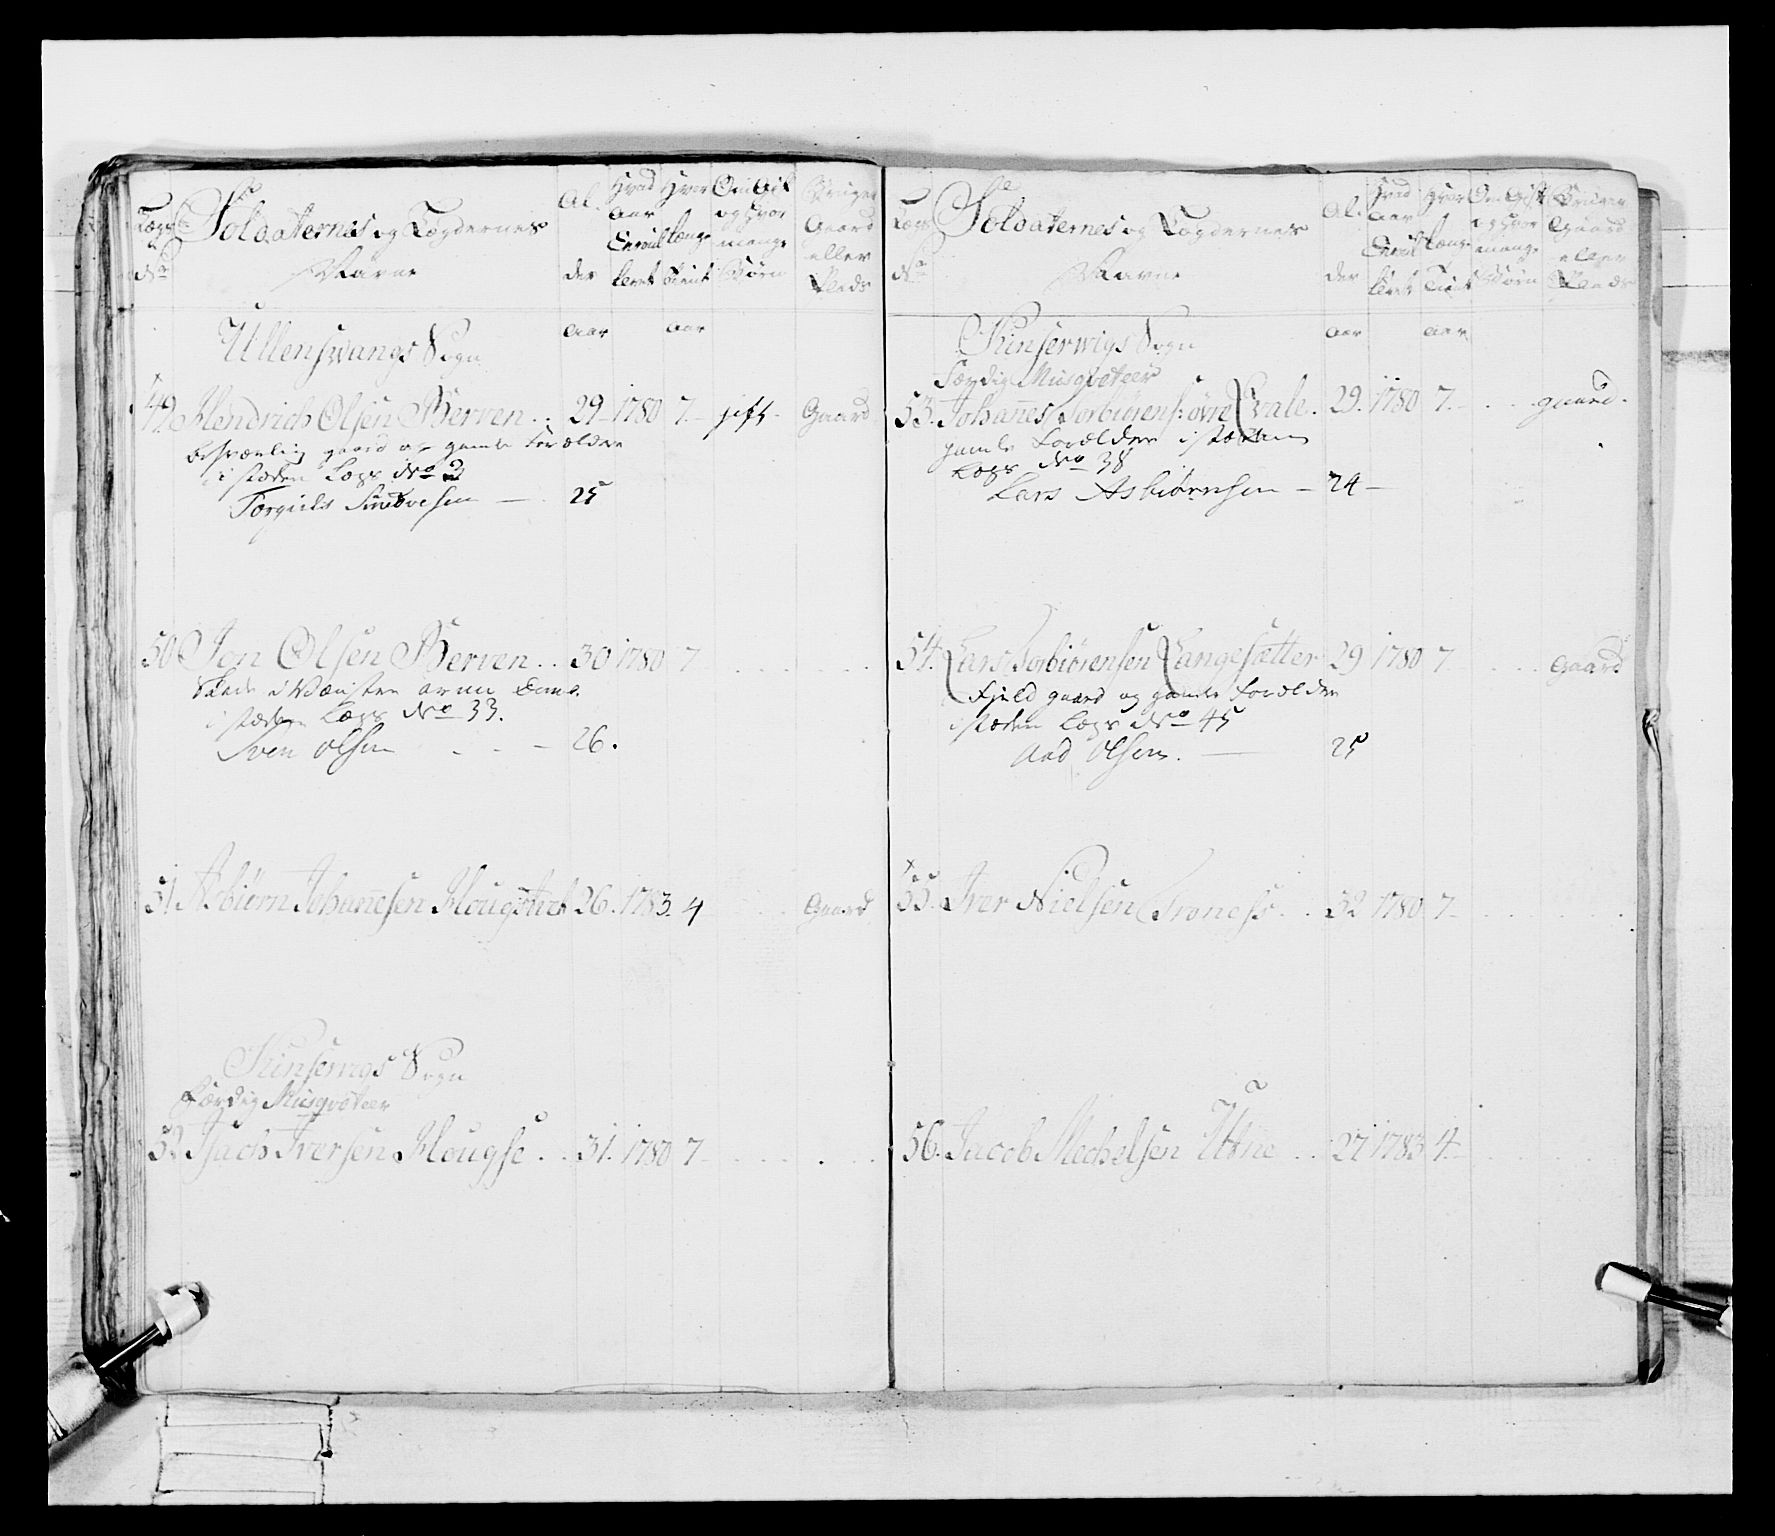 Lægs No Soldaternes og Lægdernes Navne
Al der aar
Hvad aar Enroulleret
Hvor længe Tient aar
Om Gift og Hvor mange Børn
Bruger Gaard eller Plads
Ullenswangs Sogn
49 Hendrich Olsen Berven .. 29 1780 7 gift Gaard
besværlig gaard og gamle Forældre
i stæden Lægs No 2
Torgiuls Siurdvesen — 25
50 Jon Olsen Berven .. 30 1780 7
Skade i Vænster arm
i stæden Lægs No 33.
Sven Olsen - - - 26.
51 Asbiørn Johannesen Hougstvet 26. 1783. 4 Gaard
Kinservigs Sogn
Færdig Musqveteer
52 Isach Iversen Hougse .. 31. 1780 7
Lægs No Soldaternes og Lægdernes Navne
Al der aar
Hvad aar Enroulleret
Hvor længe Tient aar
Om Gift og Hvor mange Børn
Bruger Gaard eller Plads
Kinserwigs Sogn
Færdig Musqveteer
53. Johannes Torbiørens: øvre Qvale. 29. 1780 7. gaard.
gamle Forælder i stæden
Lægs No 38
Lars Asbiørnsen — 24 —
54. Lars Torbiørensen Langesætter 29 1780 7 Gaard
Fjeld gaard og gamle Forælder
i stæden Lægs No 45
Aad Olsen. — 25
55. Iver Nielsen Troness .. 32 1780 7
56. Jacob Mechelsen Utne .. 27 1783 4